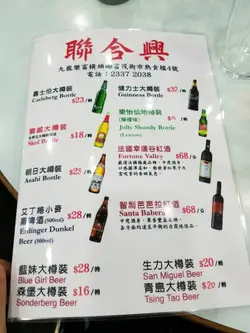 聯合興
九龍樂富橫頭磡富茂街市熟食檔4號
電話：2337 2038
嘉士伯大樽裝
Carlsberg Bottle
$23/樽
健力士大樽裝
Guinness Bottle
$32/樽
藍威大樽裝
Skol Bottle
$18/樽
樂怡仙地樽裝
(檸檬味)
Jolly Shandy Bottle
(Lemon)
$6/樽
朝日大樽裝
Asahi Bottle
$23/樽
法國幸運谷紅酒
Fortune Valley
$68/支
艾丁格小麥
黑啤酒(500ml)
Erdinger Dunkel
Beer (500ml)
$28/樽
智利芭芭拉紅酒
Santa Babera
$68/支
藍妹大樽裝 $28/樽
Blue Girl Beer
生力大樽裝 $20/樽
San Miguel Beer
森堡大樽裝 $16/樽
Sonderberg Beer
青島大樽裝 $20/樽
Tsing Tao Beer